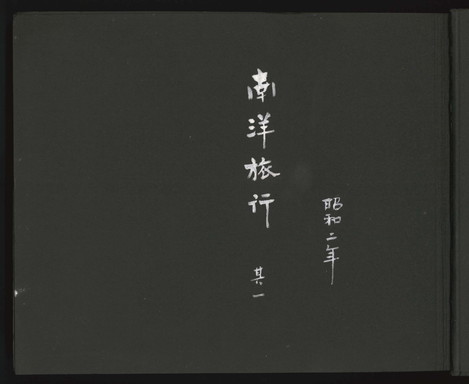 昭和二年
南洋旅行 其一